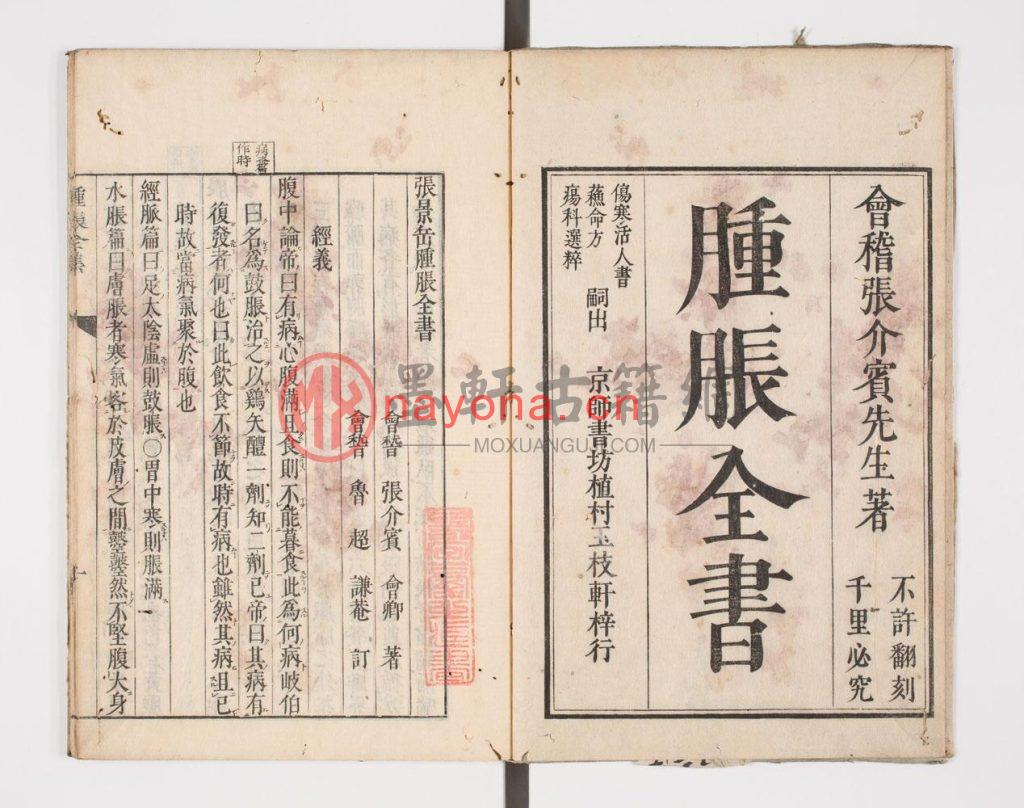 會稽張介賓先生著
不許翻刻
千里必究
腫脹全書
傷寒活人書
蘸命方
瘍科選粹
嗣出
京師書坊植村玉枝軒梓行
張景岳腫脹全書
會稽 張介賓 會卿 著
會稽 魯超 謙菴 訂
經義
腹中論帝曰有病心腹滿旦食則不能暮食此為何病岐伯
曰名為鼓脹治之以鷄矢醴一劑知二劑已帝曰其病有
復發者何也曰此飲食不節故時有病也雖然其病且已
時故當病氣聚於腹也
作時
經脈篇曰足太陰虛則鼓脹○胃中寒則脹滿
水脹篇曰膚脹者寒氣客於皮膚之間鼞鼞然不堅腹大身
墨軒古籍網
nayona.cn
MOXUANGUJI.COM